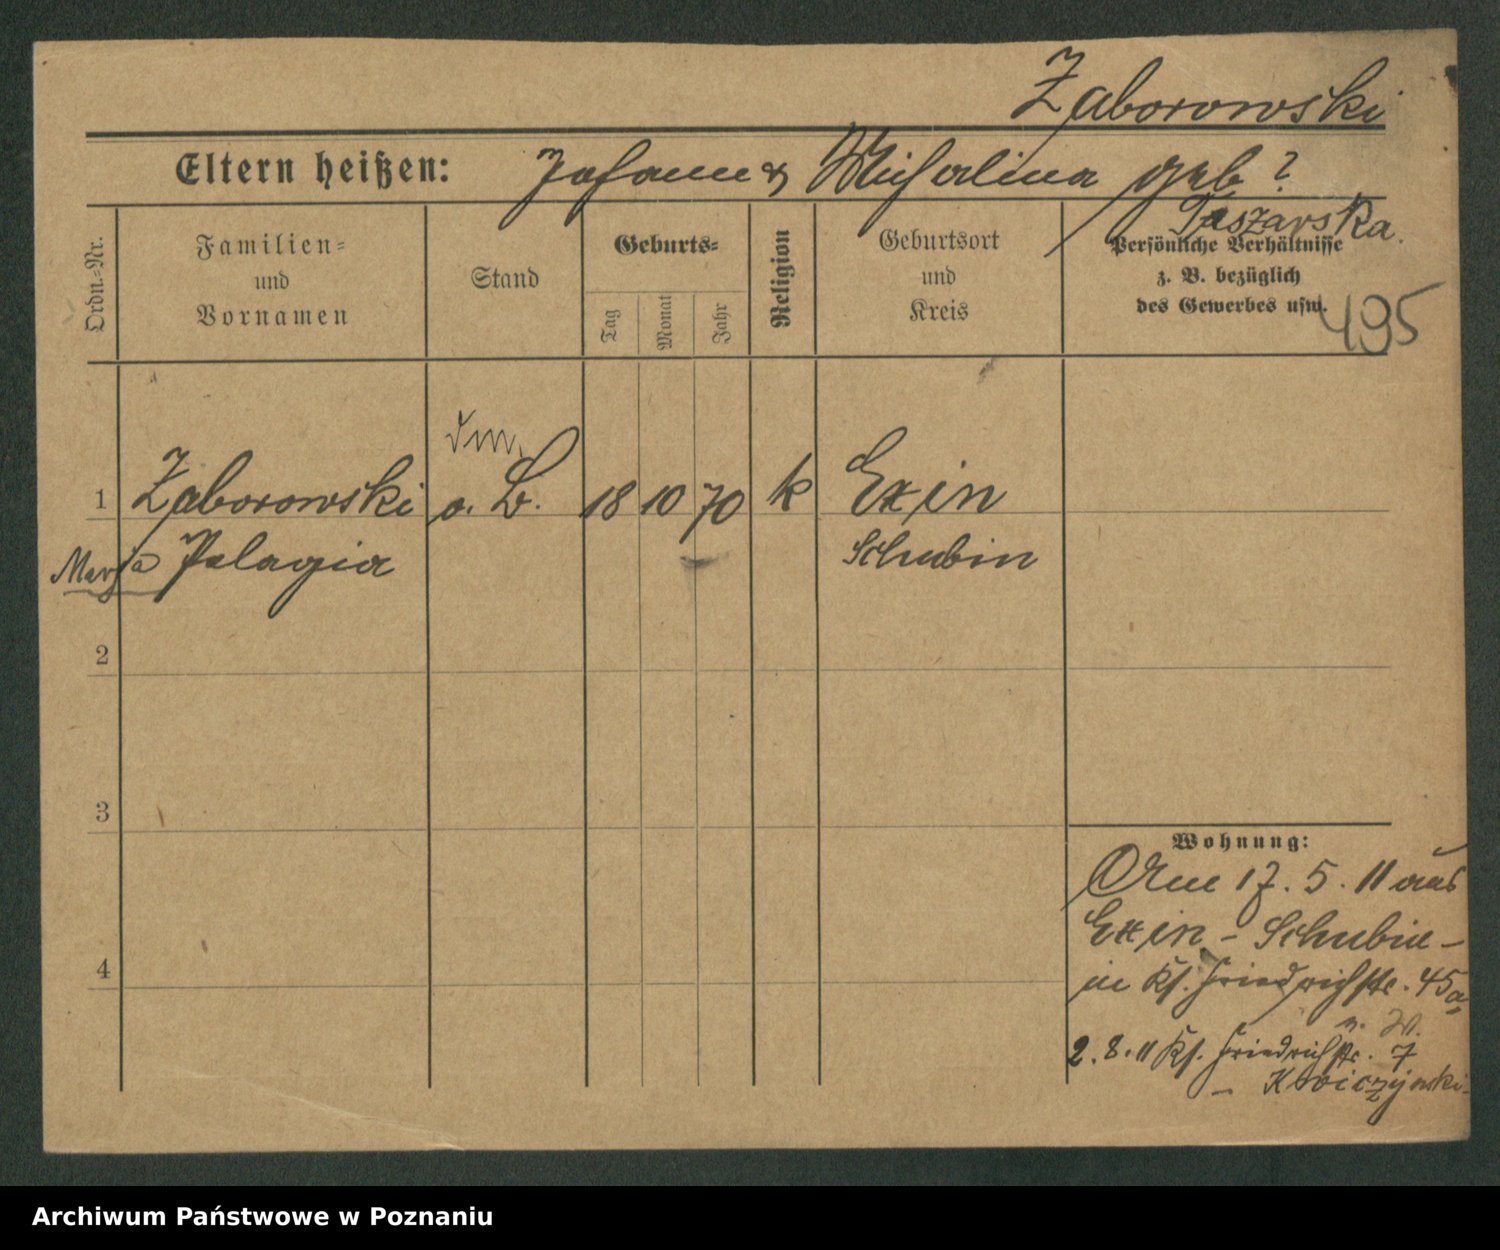 Zaborowski
Eltern heißen: Johann & Michalina geb ?
Taszarska.
Ordn.-Nr.
Familien-
und
Vornamen
Stand
Geburts-
Tag
Monat
Jahr
Religion
Geburtsort
und
Kreis
Persönliche Verhältnisse
z. B. bezüglich
des Gewerbes usw.
495
1 Zaborowski o. B. 18 10 70 k Exin
Pelagia Schubin
2
3
4
Wohnung:
Am 17. 5. 11 aus
Exin - Schubin -
in Ks. Friedrichstr. 45a
2. 8. 11 Ks. Friedrichstr. 7
Archiwum Państwowe w Poznaniu